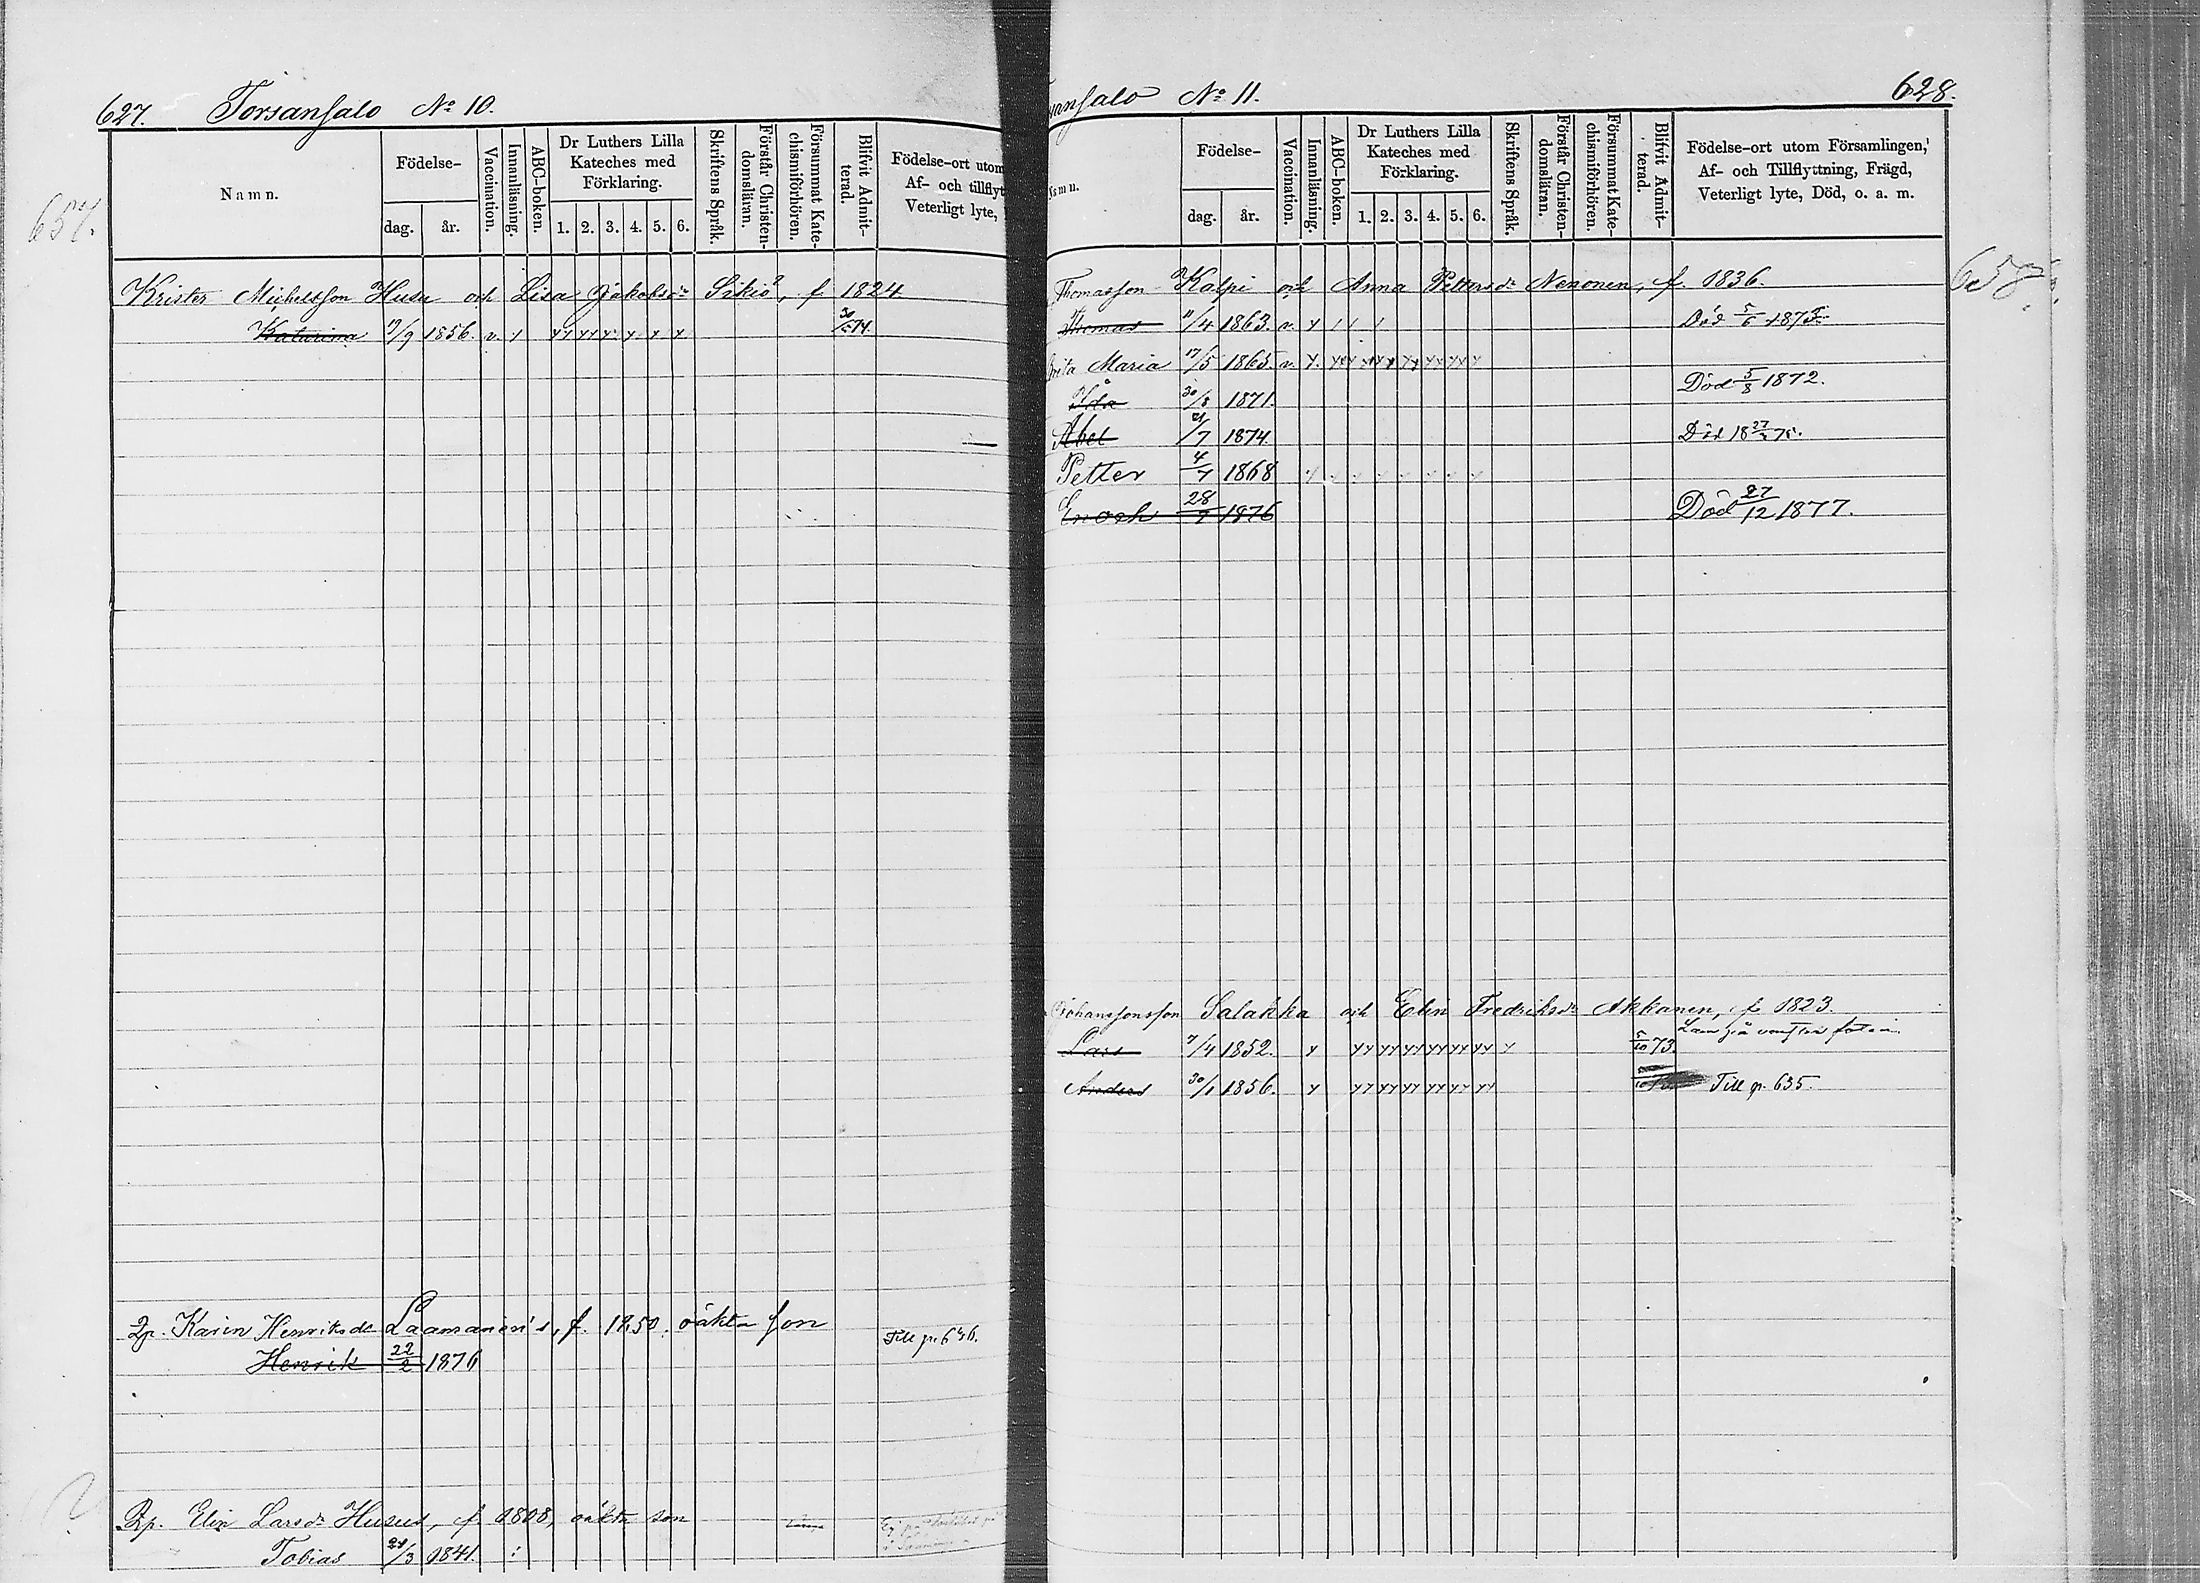 627. Torsansalo No 10.
657.
Namn.
Födelse-
dag.
år.
Vaccination.
Innanläsning.
ABC-boken.
Dr Luthers Lilla
Kateches med
Förklaring.
1. 2. 3. 4. 5. 6.
Skriftens Språk.
Förstår Christen-
domsläran.
Försummat Kate-
chismiförhören.
Blifvit Admit-
terad.
Födelse-ort utom
Af- och tillflyt
Veterligt lyte,
Krister Michelsson Husu och Lisa Jakobsdr Sikiö, f 1824
Katarina 17/9 1856. v. y yy yy y y y y 30/5 74.
2p. Karin Henriksdr Laamanen's, f. 1850. oäkta son
Till p. 646.
Henrik 22/2 1876
Rp. Elin Larsdr Husus, f. 1808, oäkta son
Tobias 21/3 1841.
ransalo No 11.
628.
658.
amn.
Födelse-
dag.
år.
Vaccination.
Innanläsning.
ABC-boken.
Dr Luthers Lilla
Kateches med
Förklaring.
1. 2. 3. 4. 5. 6.
Skriftens Språk.
Förstår Christen-
domsläran.
Försummat Kate-
chismiförhören.
Blifvit Admit-
terad.
Födelse-ort utom Församlingen,
Af- och Tillflyttning, Frägd,
Veterligt lyte, Död, o. a. m.
Thomasson Kalpi och Anna Pettersdr Nenonen, f. 1836.
Thomas 11/4 1863. v. y Död 5/6 1873.
Brita Maria 17/5 1865. v. y.
Ida 30/8 1871. Död 5/8 1872.
Abel 21/7 1874. Död 18 27/ 75.
Petter 4/7 1868
Enoch 28/7 1876 Död 27/12 1877.
Johanssonsson Salakka och Elin Fredriksdr Akkanen, f. 1823.
Lars 7/4 1852. y yy yy yy yy yy yy y 5/10 73. Lam på
Anders 30/1 1856. y yy yy yy yy yy yy Till p. 635.